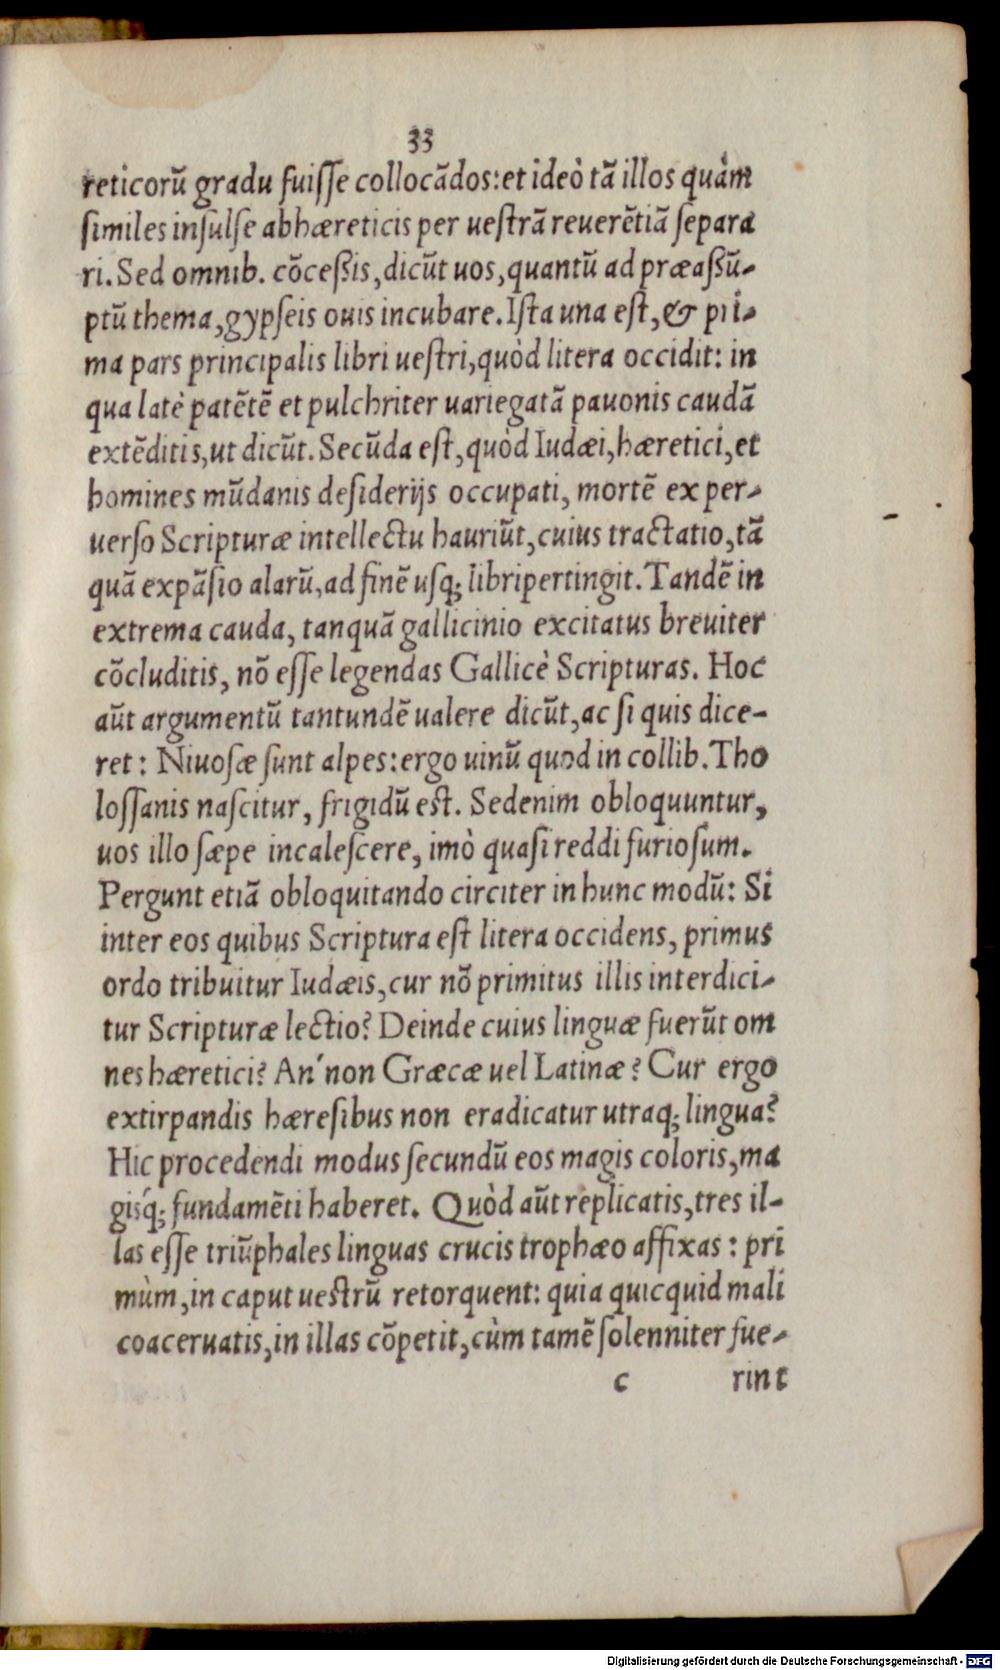 33
reticorū gradu fuiſſe collocādos: et ideò tā illos quàm
ſimiles inſulſe ab hæreticis per ueſtrā reuerētiā ſepara
ri. Sed omnib. cōceßis, dicūt uos, quantū ad præaßū-
ptū thema, gypſeis ouis incubare. Iſta una eſt, & pri-
ma pars principalis libri ueſtri, quòd litera occidit: in
qua latè patētē et pulchriter uariegatā pauonis caudā
extēditis, ut dicūt. Secūda eſt, quòd Iudæi, hæretici, et
homines mūdanis deſiderijs occupati, mortē ex per-
uerſo Scripturæ intellectu hauriūt, cuius tractatio, tā
quā expāſio alarū, ad finē uſq; libri pertingit. Tandē in
extrema cauda, tanquā gallicinio excitatus breuiter
cōcluditis, nō eſſe legendas Gallicè Scripturas. Hoc
aūt argumentū tantundē ualere dicūt, ac ſi quis dice-
ret: Niuoſæ ſunt alpes: ergo uinū quod in collib. Tho
loſſanis naſcitur, frigidū eſt. Sedenim obloquuntur,
uos illo ſæpe incaleſcere, imò quaſi reddi furioſum.
Pergunt etiā obloquitando circiter in hunc modū: Si
inter eos quibus Scriptura eſt litera occidens, primus
ordo tribuitur Iudæis, cur nō primitus illis interdici-
tur Scripturæ lectio? Deinde cuius linguæ fuerūt om
nes hæretici? An' non Græcæ uel Latinæ? Cur ergo
extirpandis hæreſibus non eradicatur utraq; lingua?
Hic procedendi modus ſecundū eos magis coloris, ma
giśq; fundamēti haberet. Quòd aūt replicatis, tres il-
las eſſe triūphales linguas crucis trophæo affixas: pri
mùm, in caput ueſtrū retorquent: quia quicquid mali
coaceruatis, in illas cōpetit, cùm tamē ſolenniter fue-
c rint
Digitalisierung gefördert durch die Deutsche Forschungsgemeinschaft - DFG